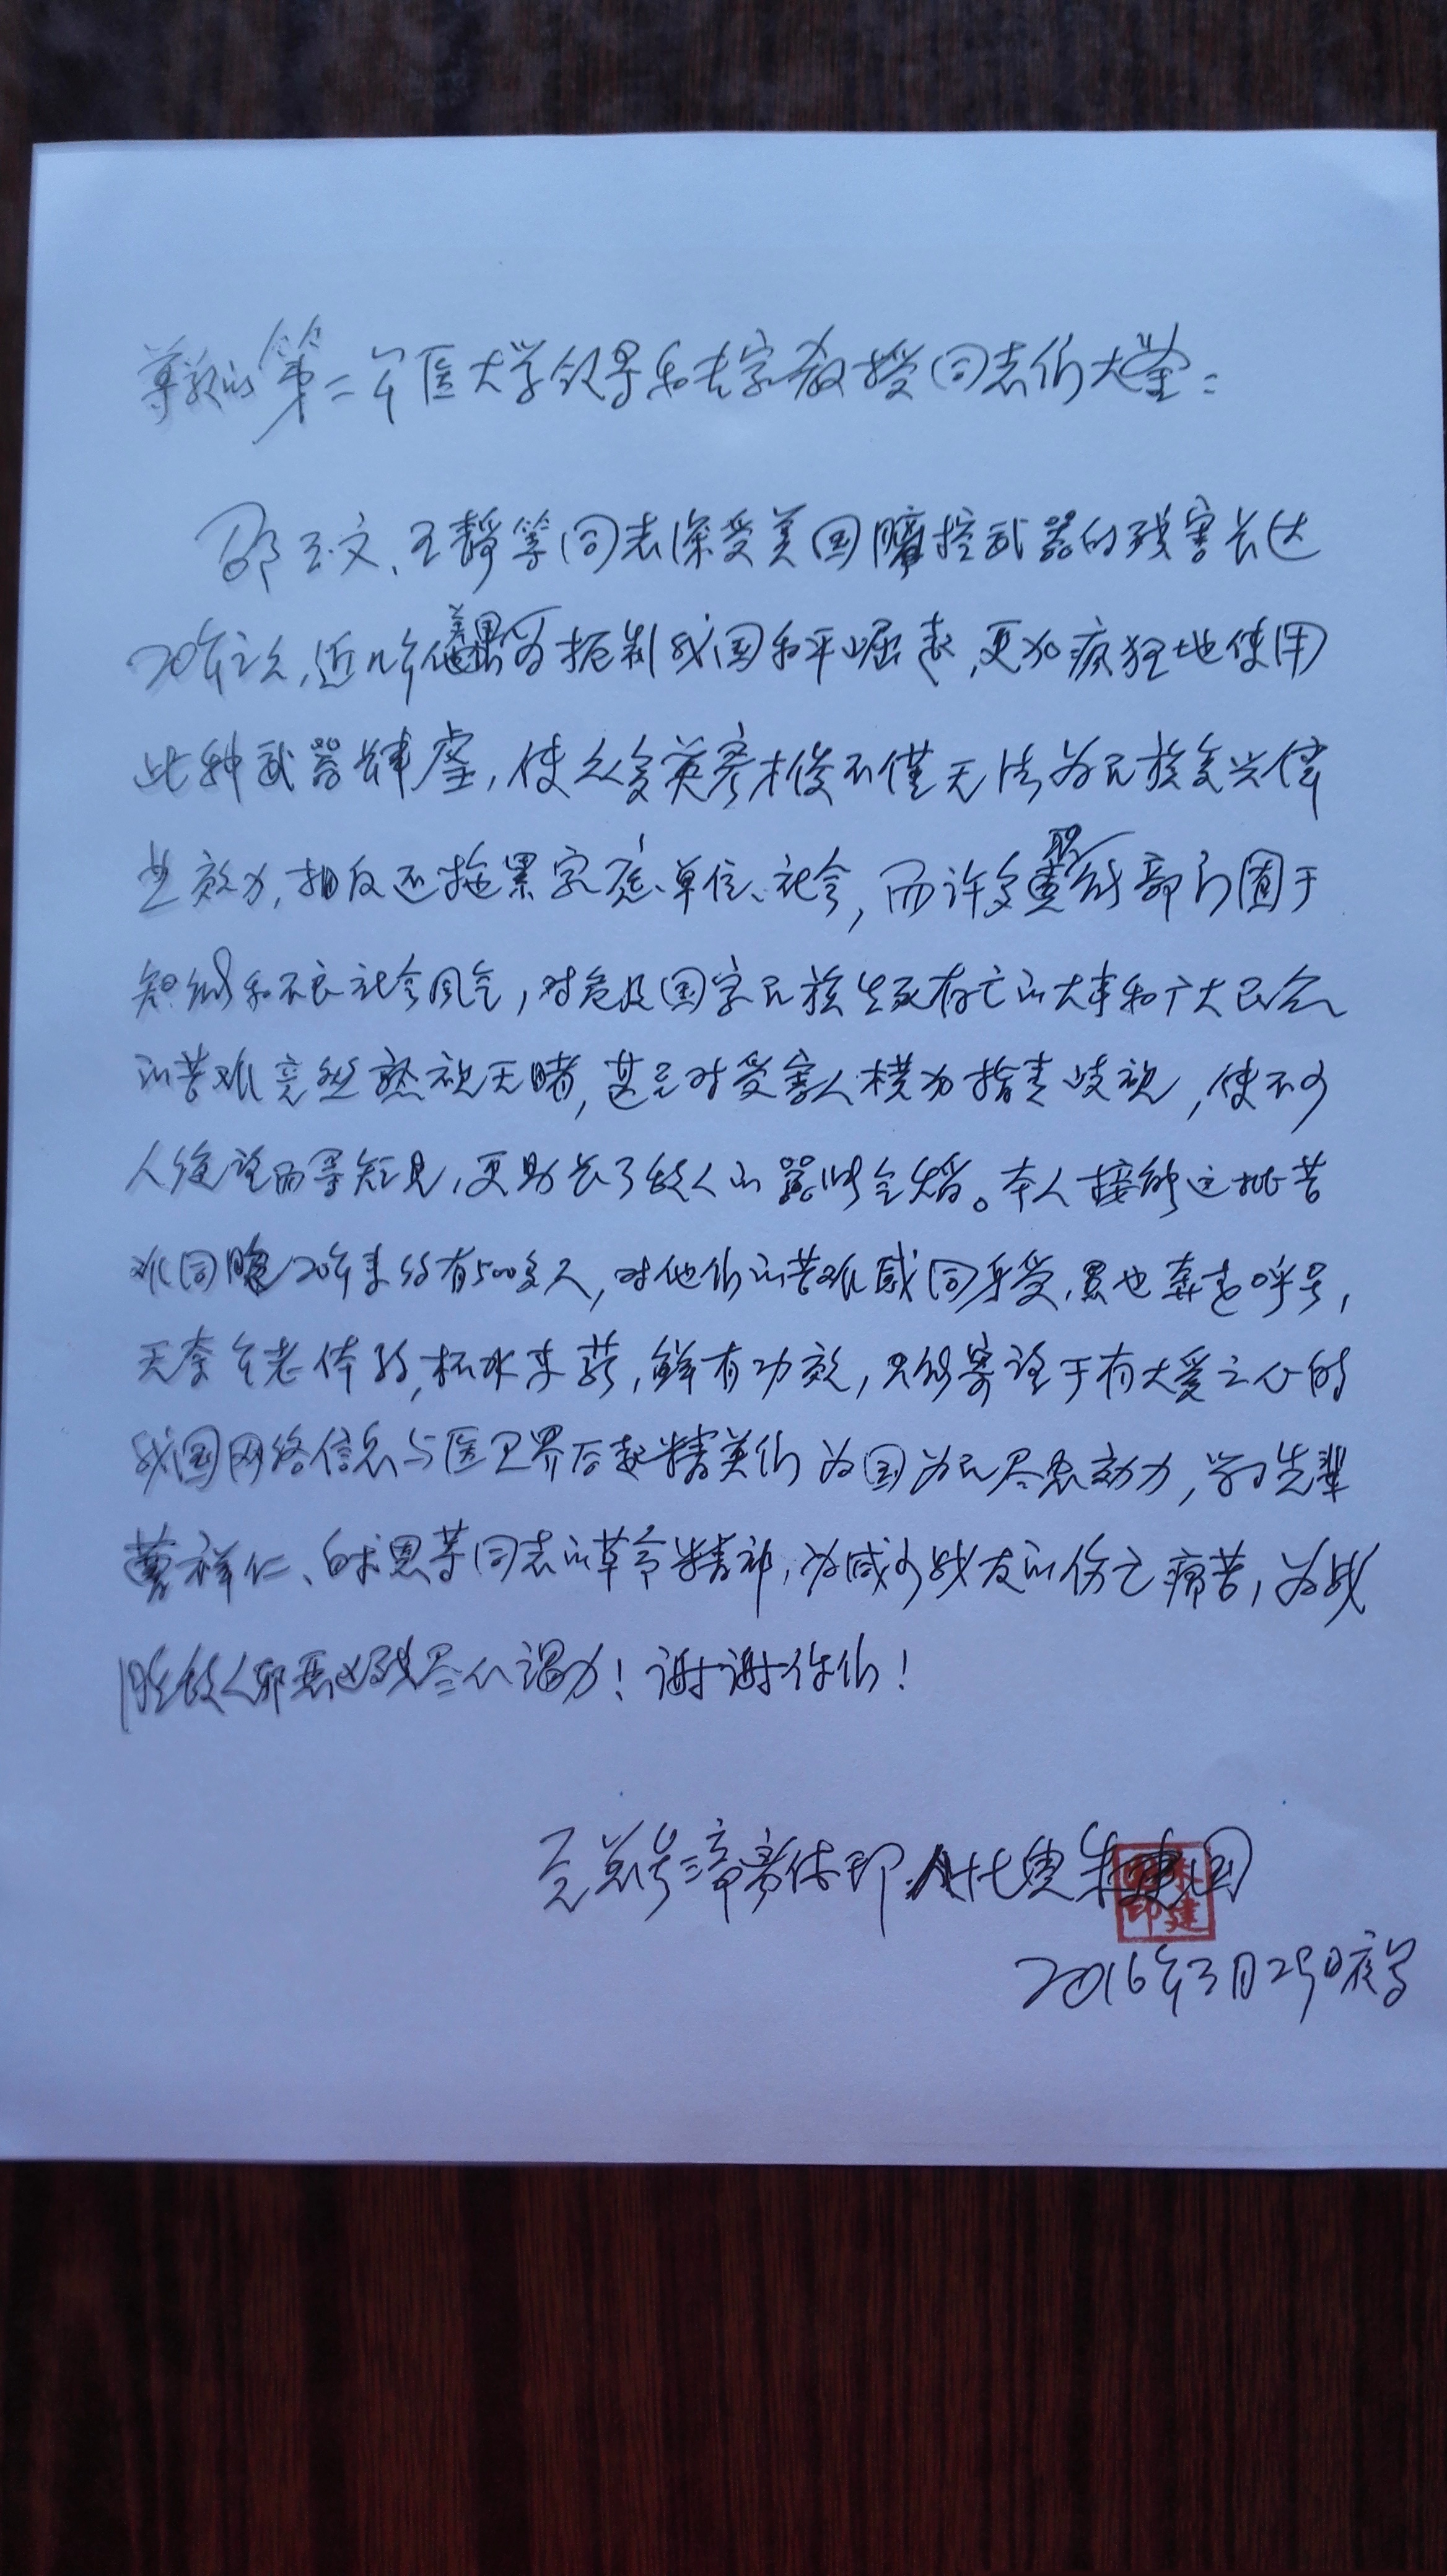 尊敬的第二军医大学领导和专家教授同志们大鉴：
邵玉文、王静等同志深受美国脑控武器的残害长达
20年之久，近几年美国为扼制我国和平崛起，更加疯狂地使用
此种武器肆虐，使众多英才俊不仅无法为民族复兴伟
业效力，相反还拖累家庭、单位、社会，而许多职能部门囿于
知识和不良社会风气，对危及国家民族生死存亡的大事和广大民众
的苦难竟然熟视无睹，甚至对受害人横加指责歧视，使不少
人绝望而寻短见，更助长了敌人的嚣张气焰。本人接触这批苦
难同胞20年来约有500多人，对他们的苦难感同身受，累也奔走呼号，
无奈年老体弱，杯水车薪，鲜有功效，只能寄望于有大爱之心的
我国网络信息与医卫界后起精英们为国为民尽忠效力，学习先辈
曹祥仁、白求恩等同志的革命精神，为减少战友的伤亡痛苦，为战
胜敌人邪恶凶残尽心竭力！谢谢你们！
朱建国
2016年3月25日夜写